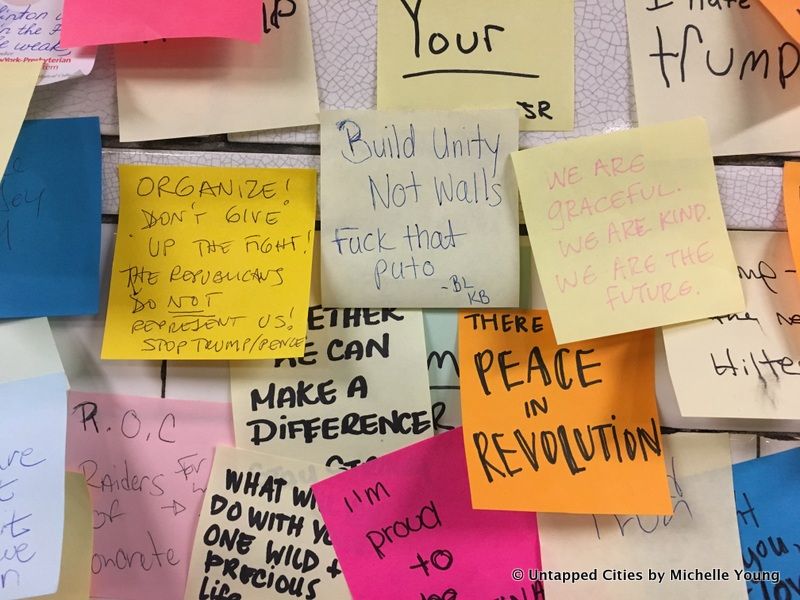 Clinton
in the
weak
York-Presbyterian
Your
JR
I hate
Trump
ORGANIZE!
DON'T GIVE
UP THE FIGHT!
THE REPUBLICANS
DO NOT
REPRESENT US!
STOP TRUMP/PENCE
Build Unity
Not Walls
Fuck that
puto
-BL
KB
WE ARE
GRACEFUL.
WE ARE KIND.
WE ARE THE
FUTURE.
WE CAN
MAKE A
DIFFERENCE
THERE
PEACE
IN
REVOLUTION
R.O.C
Raiders
of
oncrete
For
WHAT
DO WITH
ONE WILD +
PRECIOUS
Life
I'm
proud
to
you
© Untapped Cities by Michelle Young